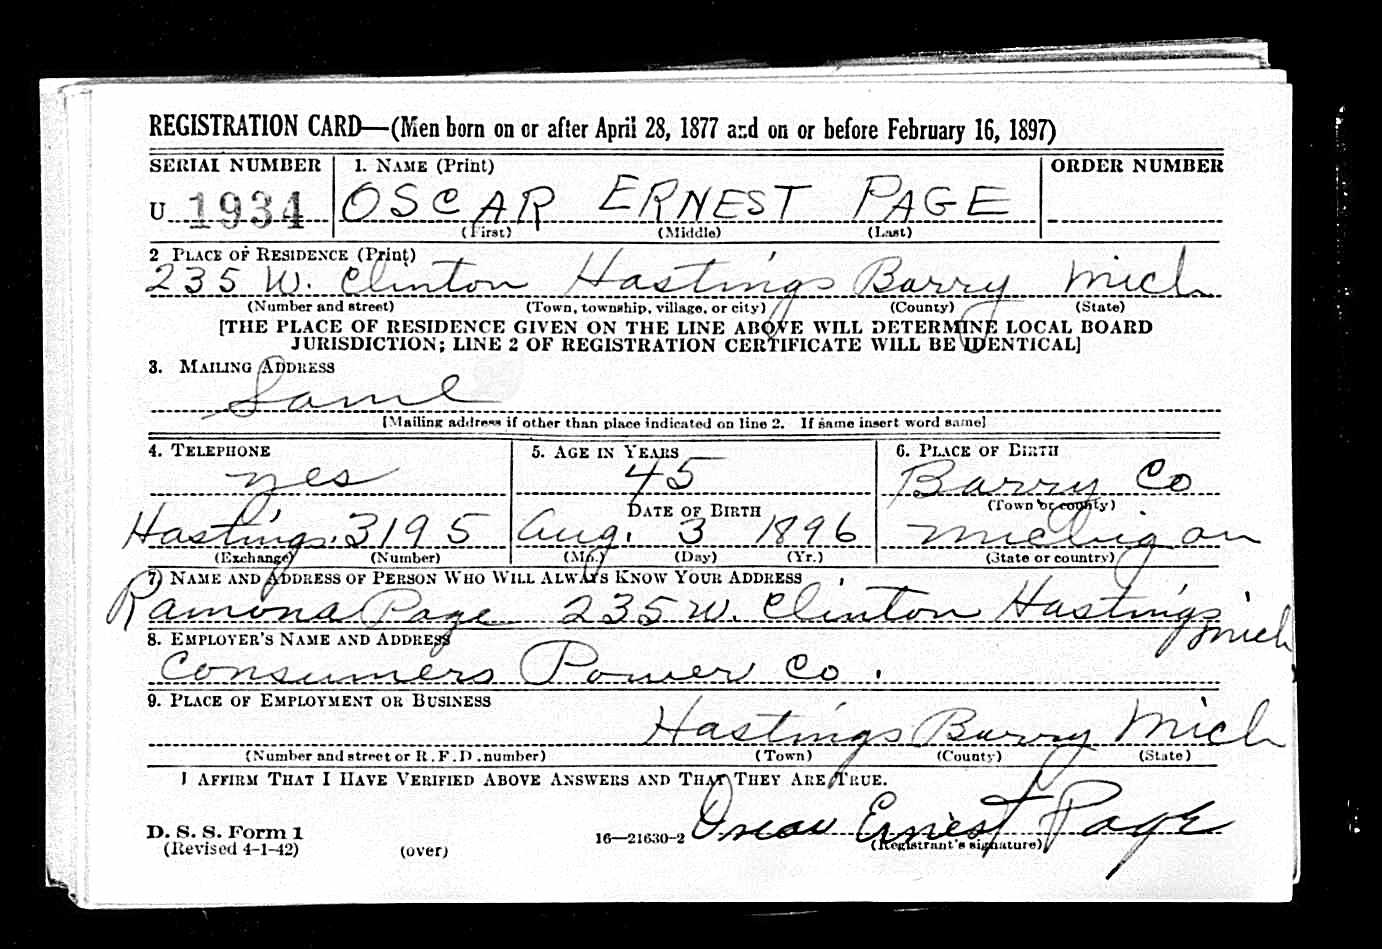 REGISTRATION CARD—(Men born on or after April 28, 1877 and on or before February 16, 1897)
SERIAL NUMBER 1. NAME (Print) ORDER NUMBER
U 1934 OSCAR ERNEST PAGE
(First) (Middle) (Last)
2 PLACE OF RESIDENCE (Print)
235 W. Clinton Hastings Barry Mich
(Number and street) (Town, township, village, or city) (County) (State)
[THE PLACE OF RESIDENCE GIVEN ON THE LINE ABOVE WILL DETERMINE LOCAL BOARD
JURISDICTION; LINE 2 OF REGISTRATION CERTIFICATE WILL BE IDENTICAL]
3. MAILING ADDRESS
Same
[Mailing address if other than place indicated on line 2. If same insert word same]
4. TELEPHONE 5. AGE IN YEARS 6. PLACE OF BIRTH
yes 45 Barry Co
DATE OF BIRTH (Town or county)
Hastings. 3195 Aug. 3 1896 Michigan
(Exchange) (Number) (Mo.) (Day) (Yr.) (State or country)
7 NAME AND ADDRESS OF PERSON WHO WILL ALWAYS KNOW YOUR ADDRESS
Ramona Page 235 W. Clinton Hastings Mich
8. EMPLOYER'S NAME AND ADDRESS
Consumers Power Co.
9. PLACE OF EMPLOYMENT OR BUSINESS
Hastings Barry Mich
(Number and street or R. F. D. number) (Town) (County) (State)
I AFFIRM THAT I HAVE VERIFIED ABOVE ANSWERS AND THAT THEY ARE TRUE.
Oscar Ernest Page
D. S. S. Form 1 16—21630-2 (Registrant's signature)
(Revised 4-1-42) (over)